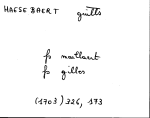 HAESEBAERT guills
fs maillaert
fs gillos
(1703) 326, 173